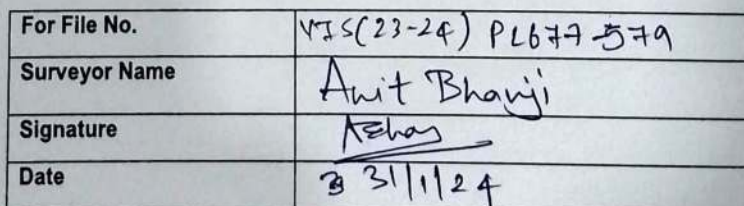 For File No. VIS(23-24) PL677-579
Surveyor Name Anit Bhanji
Signature
Date 31/1/24